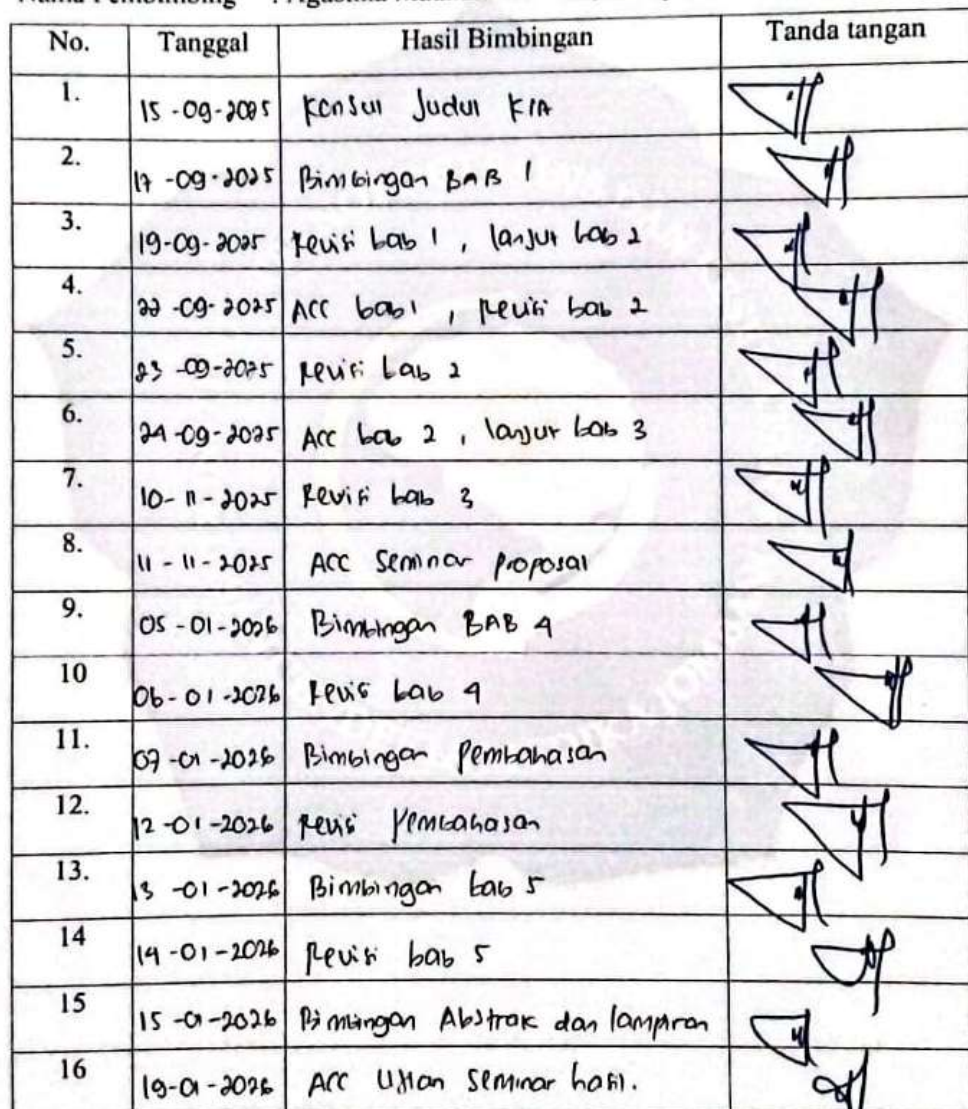 No. Tanggal Hasil Bimbingan Tanda tangan
1. 15-09-2025 Konsul Judul KIA
2. 17-09-2025 Bimbingan BAB 1
3. 19-09-2025 Revisi bab 1, lanjut bab 2
4. 22-09-2025 ACC bab 1, Revisi bab 2
5. 23-09-2025 Revisi bab 2
6. 24-09-2025 Acc bab 2, lanjut bab 3
7. 10-11-2025 Revisi bab 3
8. 11-11-2025 ACC Seminar Proposal
9. 05-01-2026 Bimbingan BAB 4
10 06-01-2026 Revisi bab 4
11. 07-01-2026 Bimbingan Pembahasan
12. 12-01-2026 Revisi Pembahasan
13. 13-01-2026 Bimbingan bab 5
14 14-01-2026 Revisi bab 5
15 15-01-2026 Bimbingan Abstrak dan lampiran
16 19-01-2026 ACC Ujian Seminar hasil.